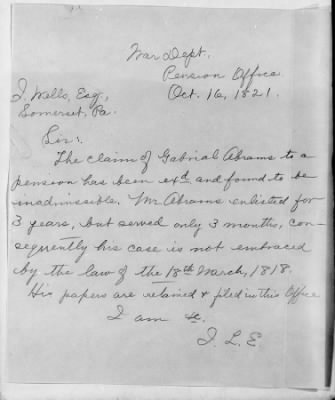 War Dept.
Pension Office
Oct. 16, 1821.
J. Wells, Esq,
Somerset, Pa.
Sir:
The claim of Gabrial Abrams to a
pension has been exd and found to be
inadmissible. Mr Abrams enlisted for
3 years, but served only 3 months, con-
sequently his case is not embraced
by the law of the 18th March, 1818.
His papers are retained & filed in this Office
I am &c.
J. L. E.